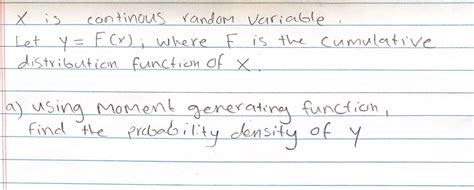 X is continous random variable.
Let y = F(x); where F is the cumulative
distribution function of X.
a) using moment generating function,
find the probability density of y